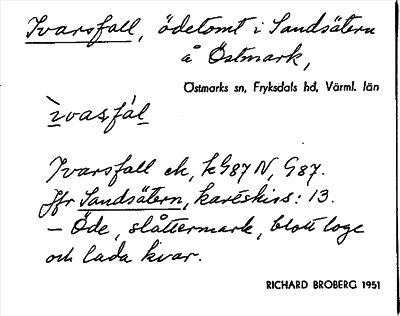 Ivarsfall, ödetomt i Sandsätern
å Östmark,
Östmarks sn, Fryksdals hd, Värml. län
ìvasfál
Ivarsfall ek, kG87N, G87.
Jfr Sandsätern, karéskirs: 13.
– Öde, slåttermark, blott loge
och lada kvar.
RICHARD BROBERG 1951